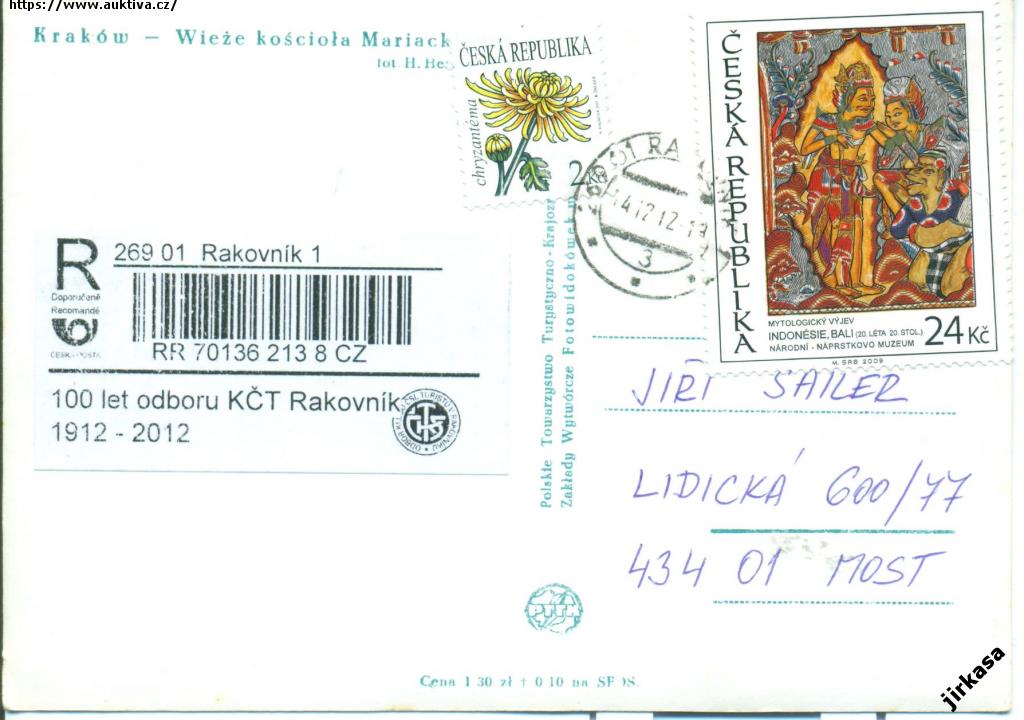 https://www.auktiva.cz/
Kraków – Wieże kościoła Mariack
fot. H. He
ČESKÁ REPUBLIKA
chryzantéma
2 Kč
14.12.12
3
ČESKÁ REPUBLIKA
MYTOLOGICKÝ VÝJEV
INDONÉSIE, BALI (20. LÉTA 20. STOL.)
NÁRODNÍ - NÁPRSTKOVO MUZEUM
24 Kč
M. SRB 2009
R
Doporučeně
Recomandé
ČESKÁ POŠTA
269 01 Rakovník 1
RR 70136 213 8 CZ
100 let odboru KČT Rakovník
1912 - 2012
Polskie Towarzystwo Turystyczno-Krajozn
Zakłady Wytwórcze Fotowidokówek
JIŘÍ SAILER
LIDICKÁ 600/77
434 01 MOST
PTTK
Cena 1 30 zł + 0 10 na SFOS.
jirkasa